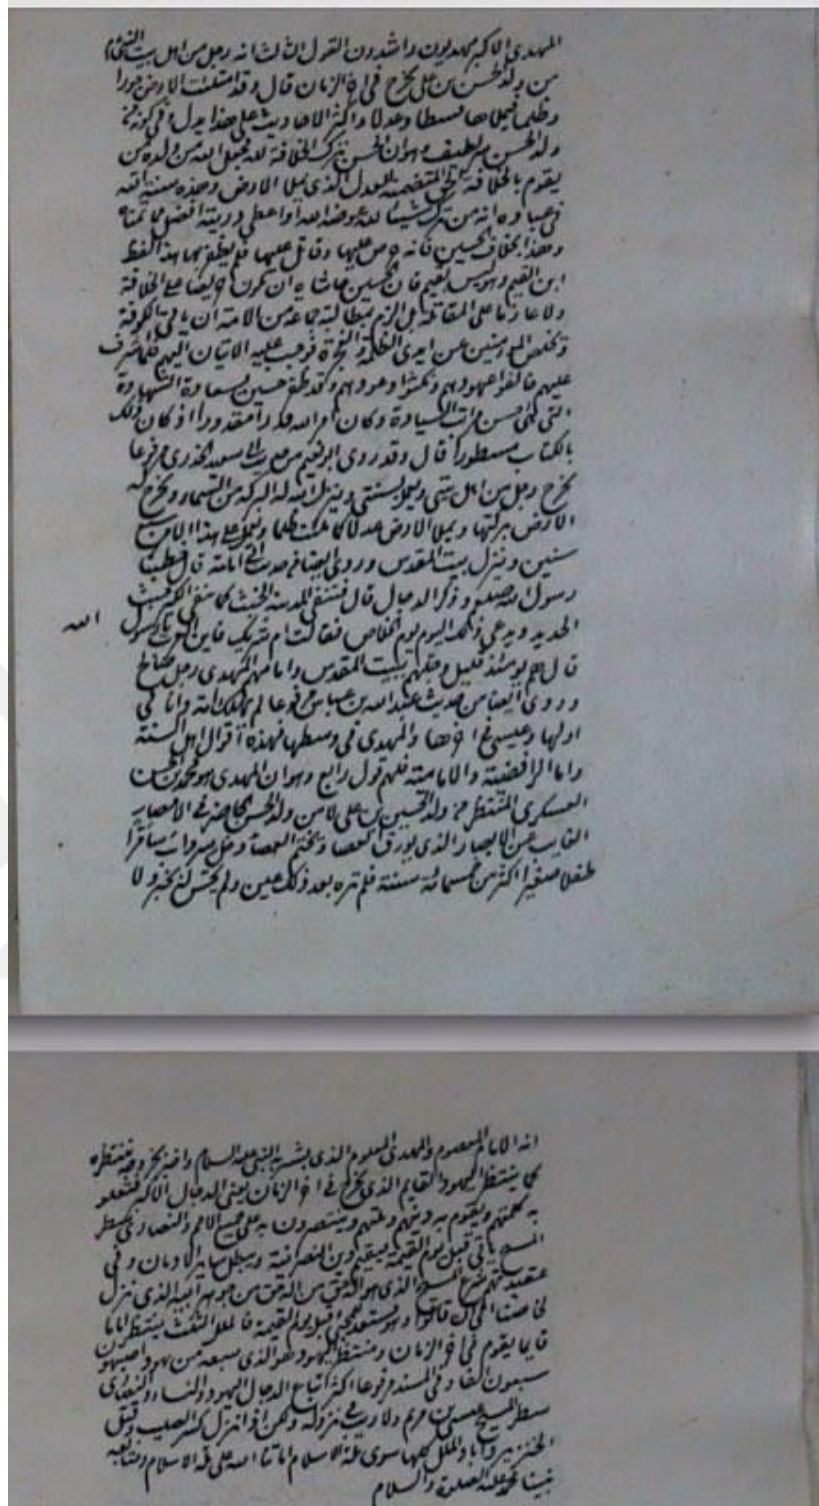 المهدى الاكبر مهديون راشدون القول الثالث انه رجل من اهل بيت النبى
من ولد الحسن بن على يخرج فى اخر الزمان قال وقد امتلئت الارض جورا
وظلما فيملاها قسطا وعدلا واكثر الاحاديث على هذا يدل وفى كونه من
ولد الحسن سر لطيف وهو ان الحسن ترك الخلافة لله فجعل الله من ولده من
يقوم بالخلافة الحق المتضمنة للعدل الذى يملا الارض وهذه سنة الله
فى عباده انه من ترك شيئا لله عوضه الله او اعطى ذريته افضل
وهذا بخلاف الحسين فانه حرص عليها وقاتل عليها فلم يظفر بها هذا لفظ
ابن القيم وهو ليس بقيم فان الحسين حاشاه ان يكون حريصا على الخلافة
ولا عازما على المقاتلة بل الزم بمطالبة جماعة من الامة ان ياتى الكوفة
وتخلص المؤمنين عن ايدى الظلمة والفجرة فوجب عليه الاتيان اليهم فلما اشرف
عليهم خالفوا عهودهم ونكثوا وعودهم وقد ظفر حسين بسعادة الشهادة
التى هى احسن مراتب السيادة وكان امر الله قدرا مقدورا اذ كان ذلك
بالكتاب مسطورا قال وقد روى ابو نعيم من حديث ابى سعيد الخدرى مرفوعا
يخرج رجل من اهل بيتى ويعمل بسنتى وينزل الله له البركة من السماء وتخرج له
الارض بركتها ويملا الارض عدلا كما ملئت ظلما ويعمل على هذا الامر سبع
سنين وينزل بيت المقدس وروى ايضا من حديث ابى امامة قال خطبنا
رسول الله صلعم وذكر الدجال قال فتنفى المدينة الخبث كما ينفى الكير خبث
الحديد ويدعى ذلك اليوم يوم الخلاص فقالت ام شريك فاين العرب يا رسول
الله
قال هم يومئذ قليل وجلهم ببيت المقدس وامامهم المهدى رجل صالح
وروى ايضا من حديث عبد الله بن عباس مرفوعا لم تهلك امة وانا فى
اولها وعيسى فى اخرها والمهدى فى وسطها فهذه اقوال اهل السنة
واما الرافضة والامامية فلهم قول رابع وهو ان المهدى هو محمد بن الحسن
العسكرى المنتظر من ولد الحسين بن على لا من ولد الحسن الحاضر فى الامصار
الغايب عن الابصار الذى يورق العصا ويختم الحصا دخل سرداب سامرا
طفلا صغيرا اكثر من خمسمائة سنة فلم تره بعد ذلك عين ولم يحس له بخبر ولا
انه الامام المعصوم والمهدى المعلوم الذى بشر به النبى عليه السلام
كما ينتظر اليهود القايم الذى يخرج فى اخر الزمان يعنى الدجال الاكبر فتعلو
به كلمتهم ويقوم به دينهم وملتهم وينتصرون به على جميع الامم والنصارى تنتظر
المسيح ياتى قبل يوم القيمة فيقيم دين النصرانية ويبطل ساير الاديان وفى
عقيدتهم نزع المسيح الذى هو اله حق من اله حق من جوهر ابيه الذى نزل
الى ان قالوا وهو مستعد للمجئ قبل يوم القيمة فالملل الثلث ينتظر اماما
قايما يقوم فى اخر الزمان ومنتظر اليهود هو الذى يتبعه من يهود اصبهان
سبعون الفا وفى المسند مرفوعا اكثر اتباع الدجال اليهود والنساء والنصارى
تنتظر المسيح عيسى بن مريم ولا ريب فى نزوله ولكن اذا نزل كسر الصليب وقتل
الخنزير واباد الملل كلها سوى ملة الاسلام اماتنا الله على ملة الاسلام ومتابعة
نبينا محمد عليه الصلوة والسلام